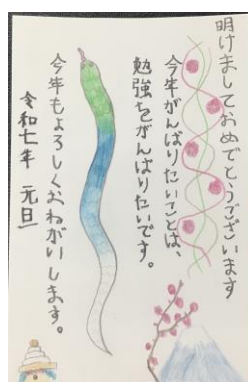 明けましておめでとうございます
今年がんばりたいことは、
勉強をがんばりたいです。
今年もよろしくおねがいします。
令和七年 元旦